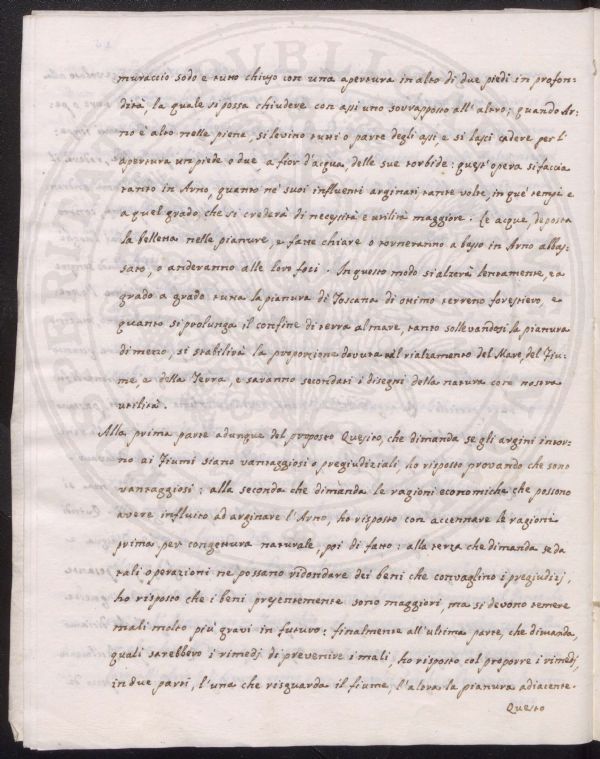 muraccio sodo e tutto chiuso con una apertura in alto di due piedi in profon-
dità, la quale si possa chiudere con assi uno sovrapposto all'altro; quando Ar-
no è alto nelle piene, si levino tutti o parte degli assi, e si lasci cadere per l'
apertura un piede o due a fior d'acqua, delle sue torbide: quest'opera si faccia
tanto in Arno, quanto ne' suoi influenti arginati tante volte, in que' tempi e
a quel grado, che si crederà di necessità e utilità maggiore. Le acque, deposta
la belletta nelle pianure, e fatte chiare o torneranno a basso in Arno abbas-
sato, o anderanno alle loro foci. In questo modo si alzerà lentamente, e a
grado a grado tutta la pianura di Toscana di ottimo terreno forestiero, e
quanto si prolunga il confine di terra al mare, tanto sollevandosi la pianura
di mezzo, si stabilirà la proporzione dovuta al rialzamento del Mare, del Fiu-
me, e della Terra, e saranno secondati i disegni della natura con nostra
utilità.
Alla prima parte adunque del proposto Quesito, che dimanda se gli argini intor-
no ai Fiumi siano vantaggiosi o pregiudiziali, ho risposto provando che sono
vantaggiosi: alla seconda che dimanda le ragioni economiche che possono
avere influito ad arginare l'Arno, ho risposto con accennare le ragioni
prima per congettura naturale, poi di fatto: alla terza che dimanda se da
tali operazioni ne possano ridondare dei beni che convaglino i pregiudizj,
ho risposto che i beni presentemente sono maggiori, ma si devono temere
mali molto più gravi in futuro: finalmente all'ultima parte, che dimanda,
quali sarebbero i rimedj di prevenire i mali, ho risposto col proporre i rimedj,
in due parti, l'una che risguarda il fiume, l'altra la pianura adiacente.
Questo